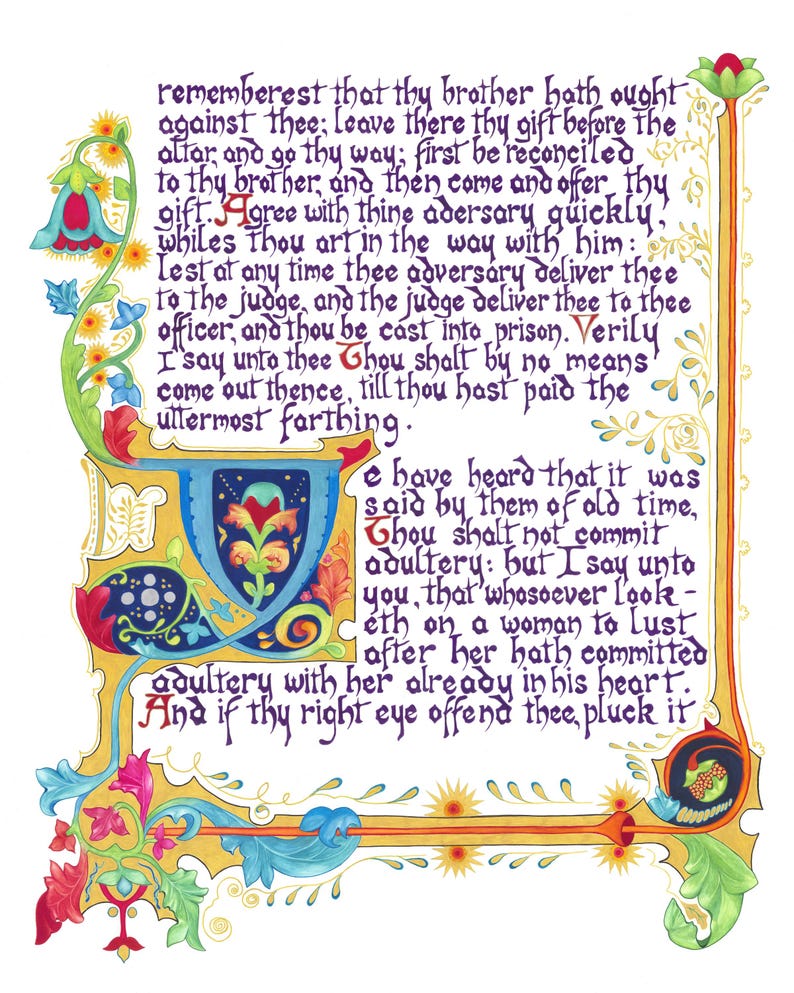 rememberest that thy brother hath ought
against thee; leave there thy gift before the
altar, and go thy way; first be reconciled
to thy brother, and then come and offer thy
gift. Agree with thine adersary quickly,
whiles thou art in the way with him:
lest at any time thee adversary deliver thee
to the judge, and the judge deliver thee to thee
officer, and thou be cast into prison. Verily
I say unto thee Thou shalt by no means
come out thence, till thou hast paid the
uttermost farthing.
Ye have heard that it was
said by them of old time,
Thou shalt not commit
adultery: but I say unto
you, that whosoever look-
eth on a woman to lust
after her hath committed
adultery with her already in his heart.
And if thy right eye offend thee, pluck it